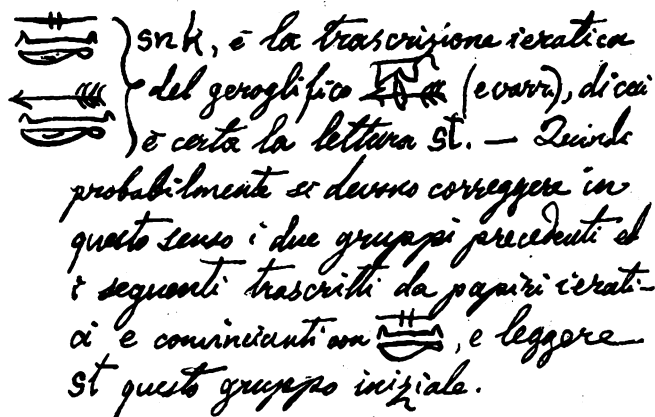 snk, è la trascrizione ieratica
del geroglifico (e varr.), di cui
è certa la lettura st. — Quindi
probabilmente si devono correggere in
questo senso i due gruppi precedenti ed
i seguenti trascritti da papiri ierati-
ci e comincianti con , e leggere
st questo gruppo iniziale.